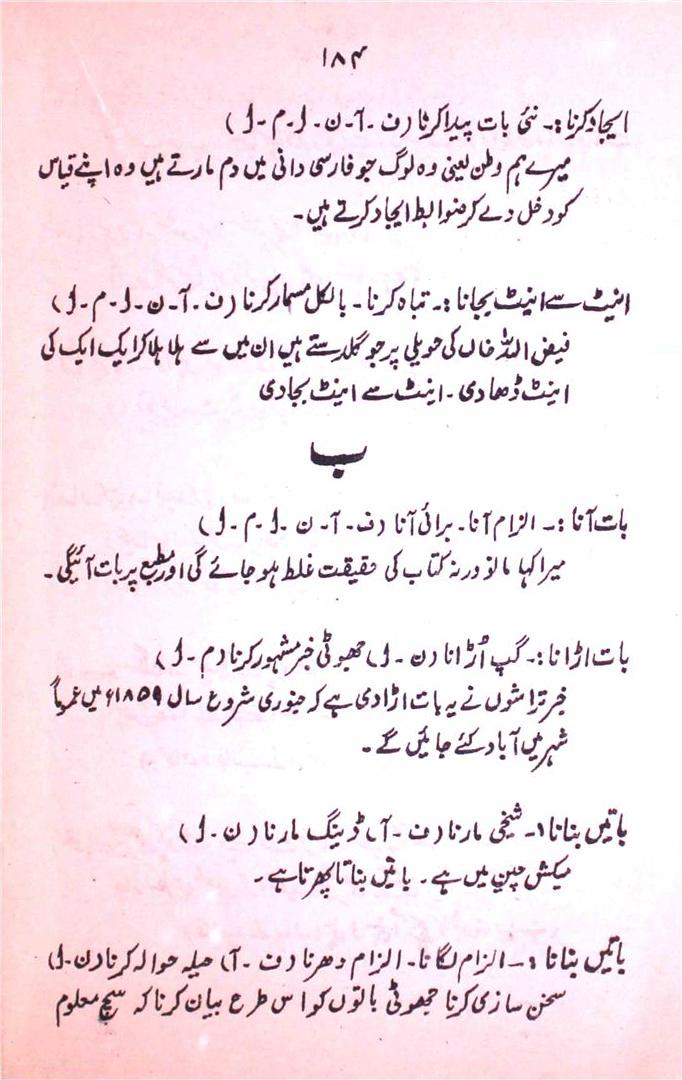 ۱۸۴
ایجاد کرنا :۔ نئی بات پیدا کرنا (ف ۔ آ ۔ ن ۔ ل ۔ م ۔ ل)
میرے ہم وطن یعنی وہ لوگ جو فارسی دانی میں دم مارتے ہیں وہ اپنے قیاس
کو دخل دے کر ضوابط ایجاد کرتے ہیں ۔
اینٹ سے اینٹ بجانا :۔ تباہ کرنا ۔ بالکل مسمار کرنا (ف ۔ آ ۔ ن ۔ ل ۔ م ۔ ل)
فیض اللہ خاں کی حویلی پر جو گلدستے ہیں ان میں سے ہلا ہلا کر ایک ایک کی
اینٹ ڈھا دی ۔ اینٹ سے اینٹ بجا دی
ب
بات آنا :۔ الزام آنا ۔ برائی آنا (ف ۔ آ ۔ ن ۔ ل ۔ م ۔ ل)
میرا کہا مانو ورنہ کتاب کی حقیقت غلط ہو جائے گی اور مطبع پر بات آئیگی ۔
بات اڑانا :۔ گپ اُڑانا (ن ۔ ل) جھوٹی خبر مشہور کرنا (م ۔ ل)
خبر تراشوں نے یہ بات اڑا دی ہے کہ جنوری شروع سال ۱۸۵۹ء میں عموماً
شہر میں آباد کئے جائیں گے ۔
باتیں بنانا ۱۔ شیخی مارنا (ف ۔ آ) ڈینگ مارنا (ن ۔ ل)
میکش چین میں ہے ۔ باتیں بناتا پھرتا ہے ۔
باتیں بنانا :۔ الزام لگانا ۔ الزام دھرنا (ف ۔ آ) حیلہ حوالہ کرنا (ن ۔ ل)
سخن سازی کرنا جھوٹی باتوں کو اس طرح بیان کرنا کہ سچ معلوم